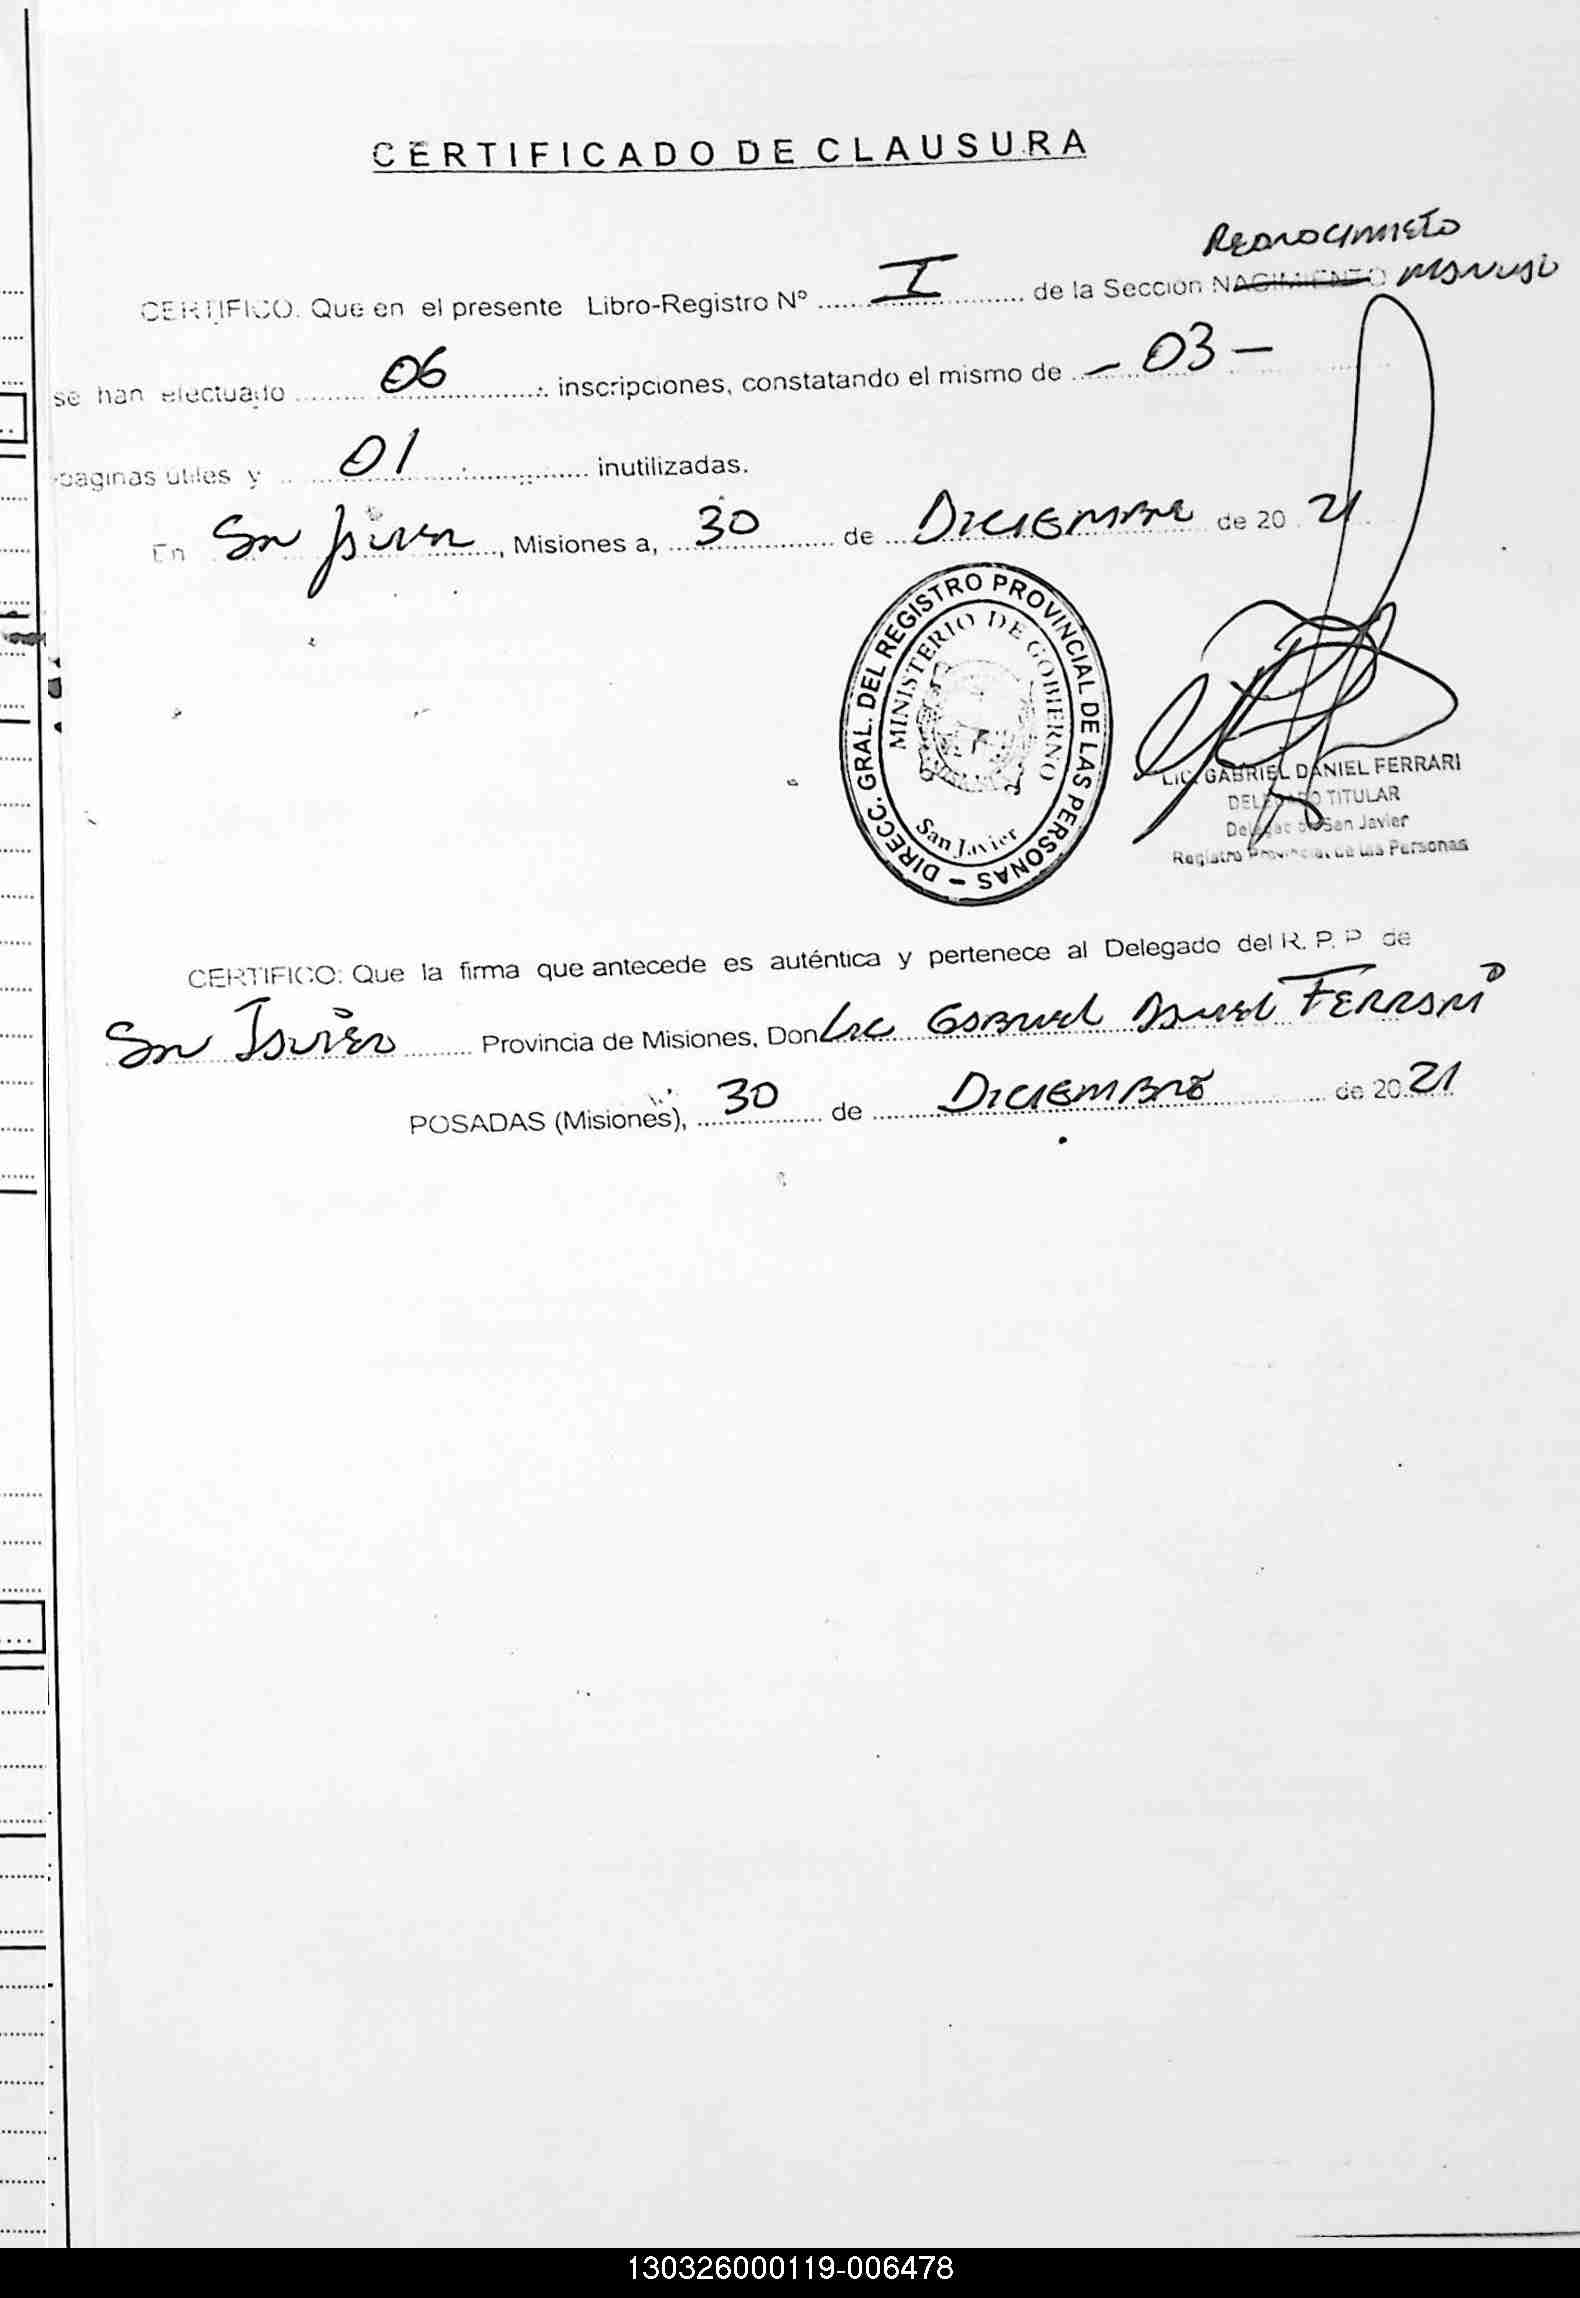 CERTIFICADO DE CLAUSURA
RECONOCIMIETO
CERTIFICO: Que en el presente Libro-Registro Nº I de la Sección NACIMIENTO MANUAL
se han efectuado 06 inscripciones, constatando el mismo de - 03 -
páginas útiles y 01 inutilizadas.
En San Javier, Misiones a, 30 de DICIEMBRE de 20 21
DIRECC. GRAL. DEL REGISTRO PROVINCIAL DE LAS PERSONAS -
MINISTERIO DE GOBIERNO
San Javier
LIC. GABRIEL DANIEL FERRARI
DELEGADO TITULAR
San Javier
Registro Provincial de las Personas
CERTIFICO: Que la firma que antecede es auténtica y pertenece al Delegado del R. P. P de
San Javier Provincia de Misiones, Don Lic GABRIEL DANIEL FERRARI
POSADAS (Misiones), 30 de DICIEMBRE de 20 21
130326000119-006478